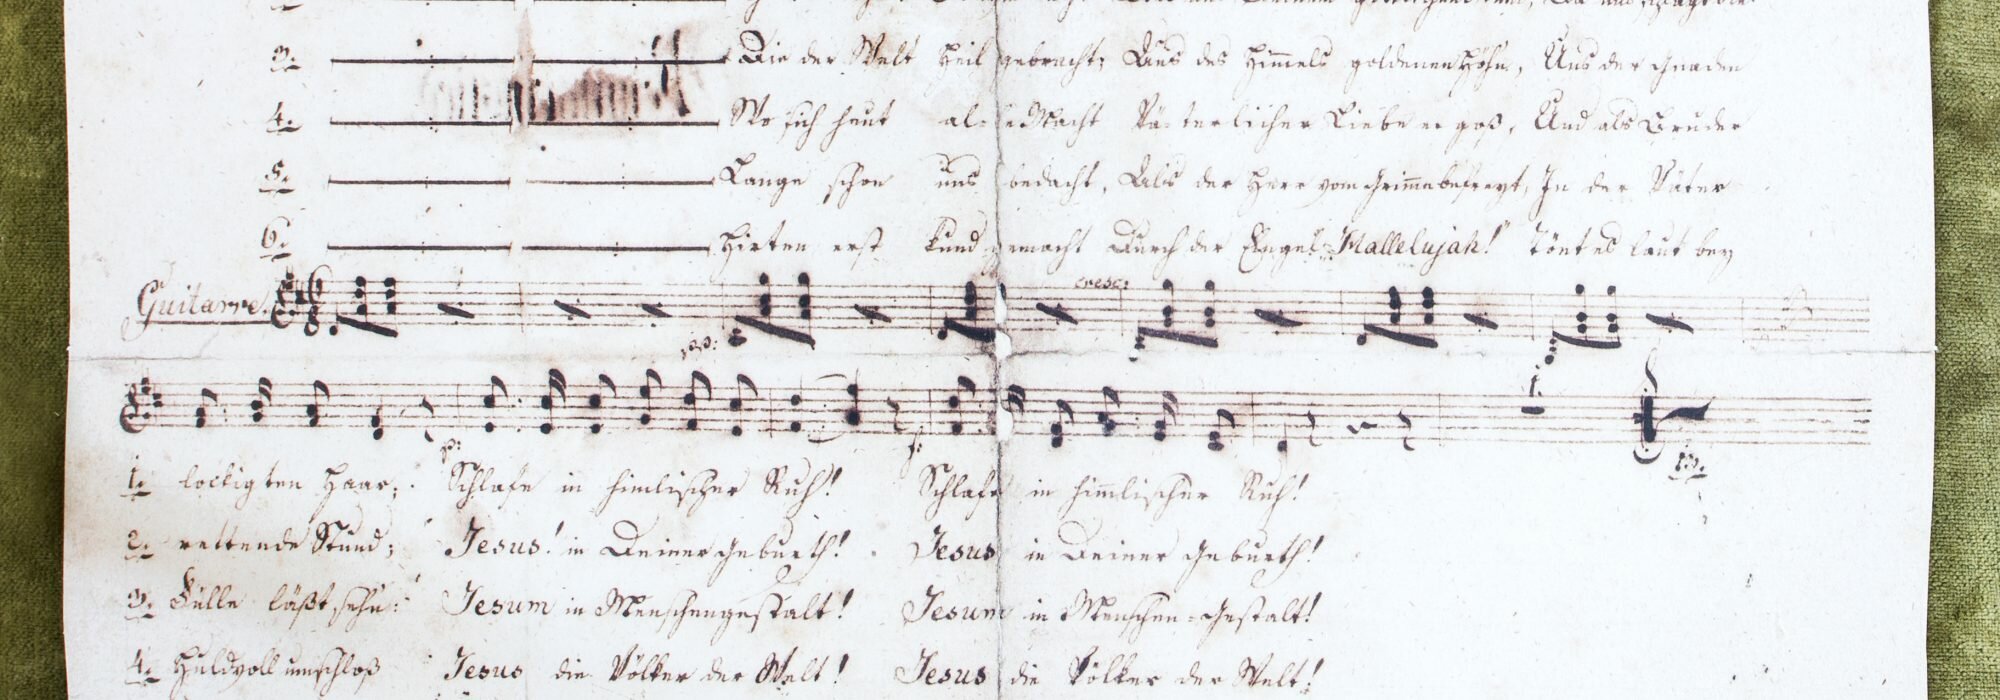 3. Die der Welt Heil gebracht; Aus des Him̅els goldenen Höhn, Uns der Gnaden
4. Wo sich heut al-le Macht Vä-terlicher Liebe er goß, Und als Bruder
5. Lange schon uns bedacht, Als der Herr vom Grim̅e befreyt, In der Väter
6. Hirten erst kund gemacht Durch der Engel „Hallelujah!" Tönt es laut bey
Guitarre.
cresc:
pp:
p: f:
1
1. lockigten Haar; Schlafe in himlischer Ruh! Schlafe in him̅lischer Ruh!
2. rettende Stund; Jesus! in Deiner Geburth! Jesus in Deiner Geburth!
3. Fülle läßt sehn: Jesum in Menschengestalt! Jesum in Menschen-Gestalt!
4. Huldvoll umschloß Jesus die Völker der Welt! Jesus die Völker der Welt!